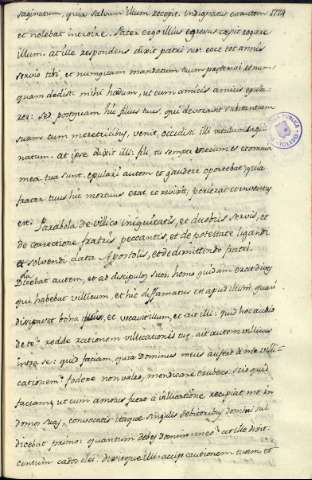 saginatum, quia salvum illum recepit. indignatus est autem
et nolebat introire. Pater ergo illius egressus cepit rogare
illum. at ille respondens dixit patri suo ecce tot annis
servio tibi, et numquam mandatum tuum preterivi et num
quam dedisti mihi hædum, ut cum amicis meis epula
rer: sed postquam hic filius tuus, qui devoravit substantiam
suam cum meretricibus, venit, occidisti illi vitulum sagi
natum. at ipse dixit illi. fili, tu semper mecum es et omnia
mea tua sunt. epulari autem et gaudere oportebat, quia
frater tuus hic mortuus erat, et revixit, perierat et inventus
est. Parabola de villico iniquitatis, et duobus servis, et
de correctione fratris peccantis, et de potestate ligandi
et solvendi data Apostolis, et de dimittendo fratri
Dicebat autem, et ad discipulos suos homo quidam erat dives
qui habebat villicum, et hic diffamatus est apud illum quasi
dissipasset bona illius, et vocavit illum, et ait illi: quid hoc audio
de te? redde rationem villicationis tuę. ait autem villicus
intra se: quid faciam, quia dominus meus aufert a me villi-
cationem? fodere non valeo, mendicare erubesco. scio quid
faciam, ut cum amotus fuero à villicatione recipiat me in
domos suas, convocatis itaque singulis debitoribus domini sui
dicebat primo: quantum debes domino meo? at ille dixit.
centum cados olei. dixitque illi: accipe cautionem tuam et